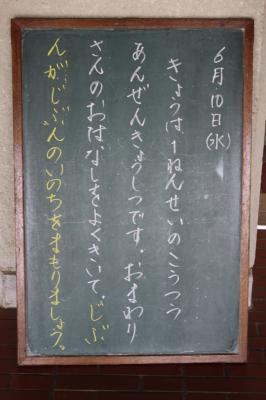 6月10日(水)
きょうは、1ねんせいのこうつう
あんぜんきょうしつです。おまわり
さんのおはなしをよくきいて、じぶ
んが、じぶんのいのちをまもりましょう。